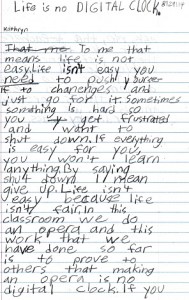 Life is no DIGITAL CLOCK
Kathryn
To me that
means life is not
easy. Life isn't easy you
need to push
to changenges and
just go for it. Sometimes
something is hard so
you get frustrated
and want to
shut down. If everything
is easy for you
you won't learn
anything. By saying
shut down I mean
give up. Life isn't
easy because life
isn't fair. In this
classroom we do
an opera and this
work that we
have done so far
is to prove to
others that making
an opera is no
digital clock. If you